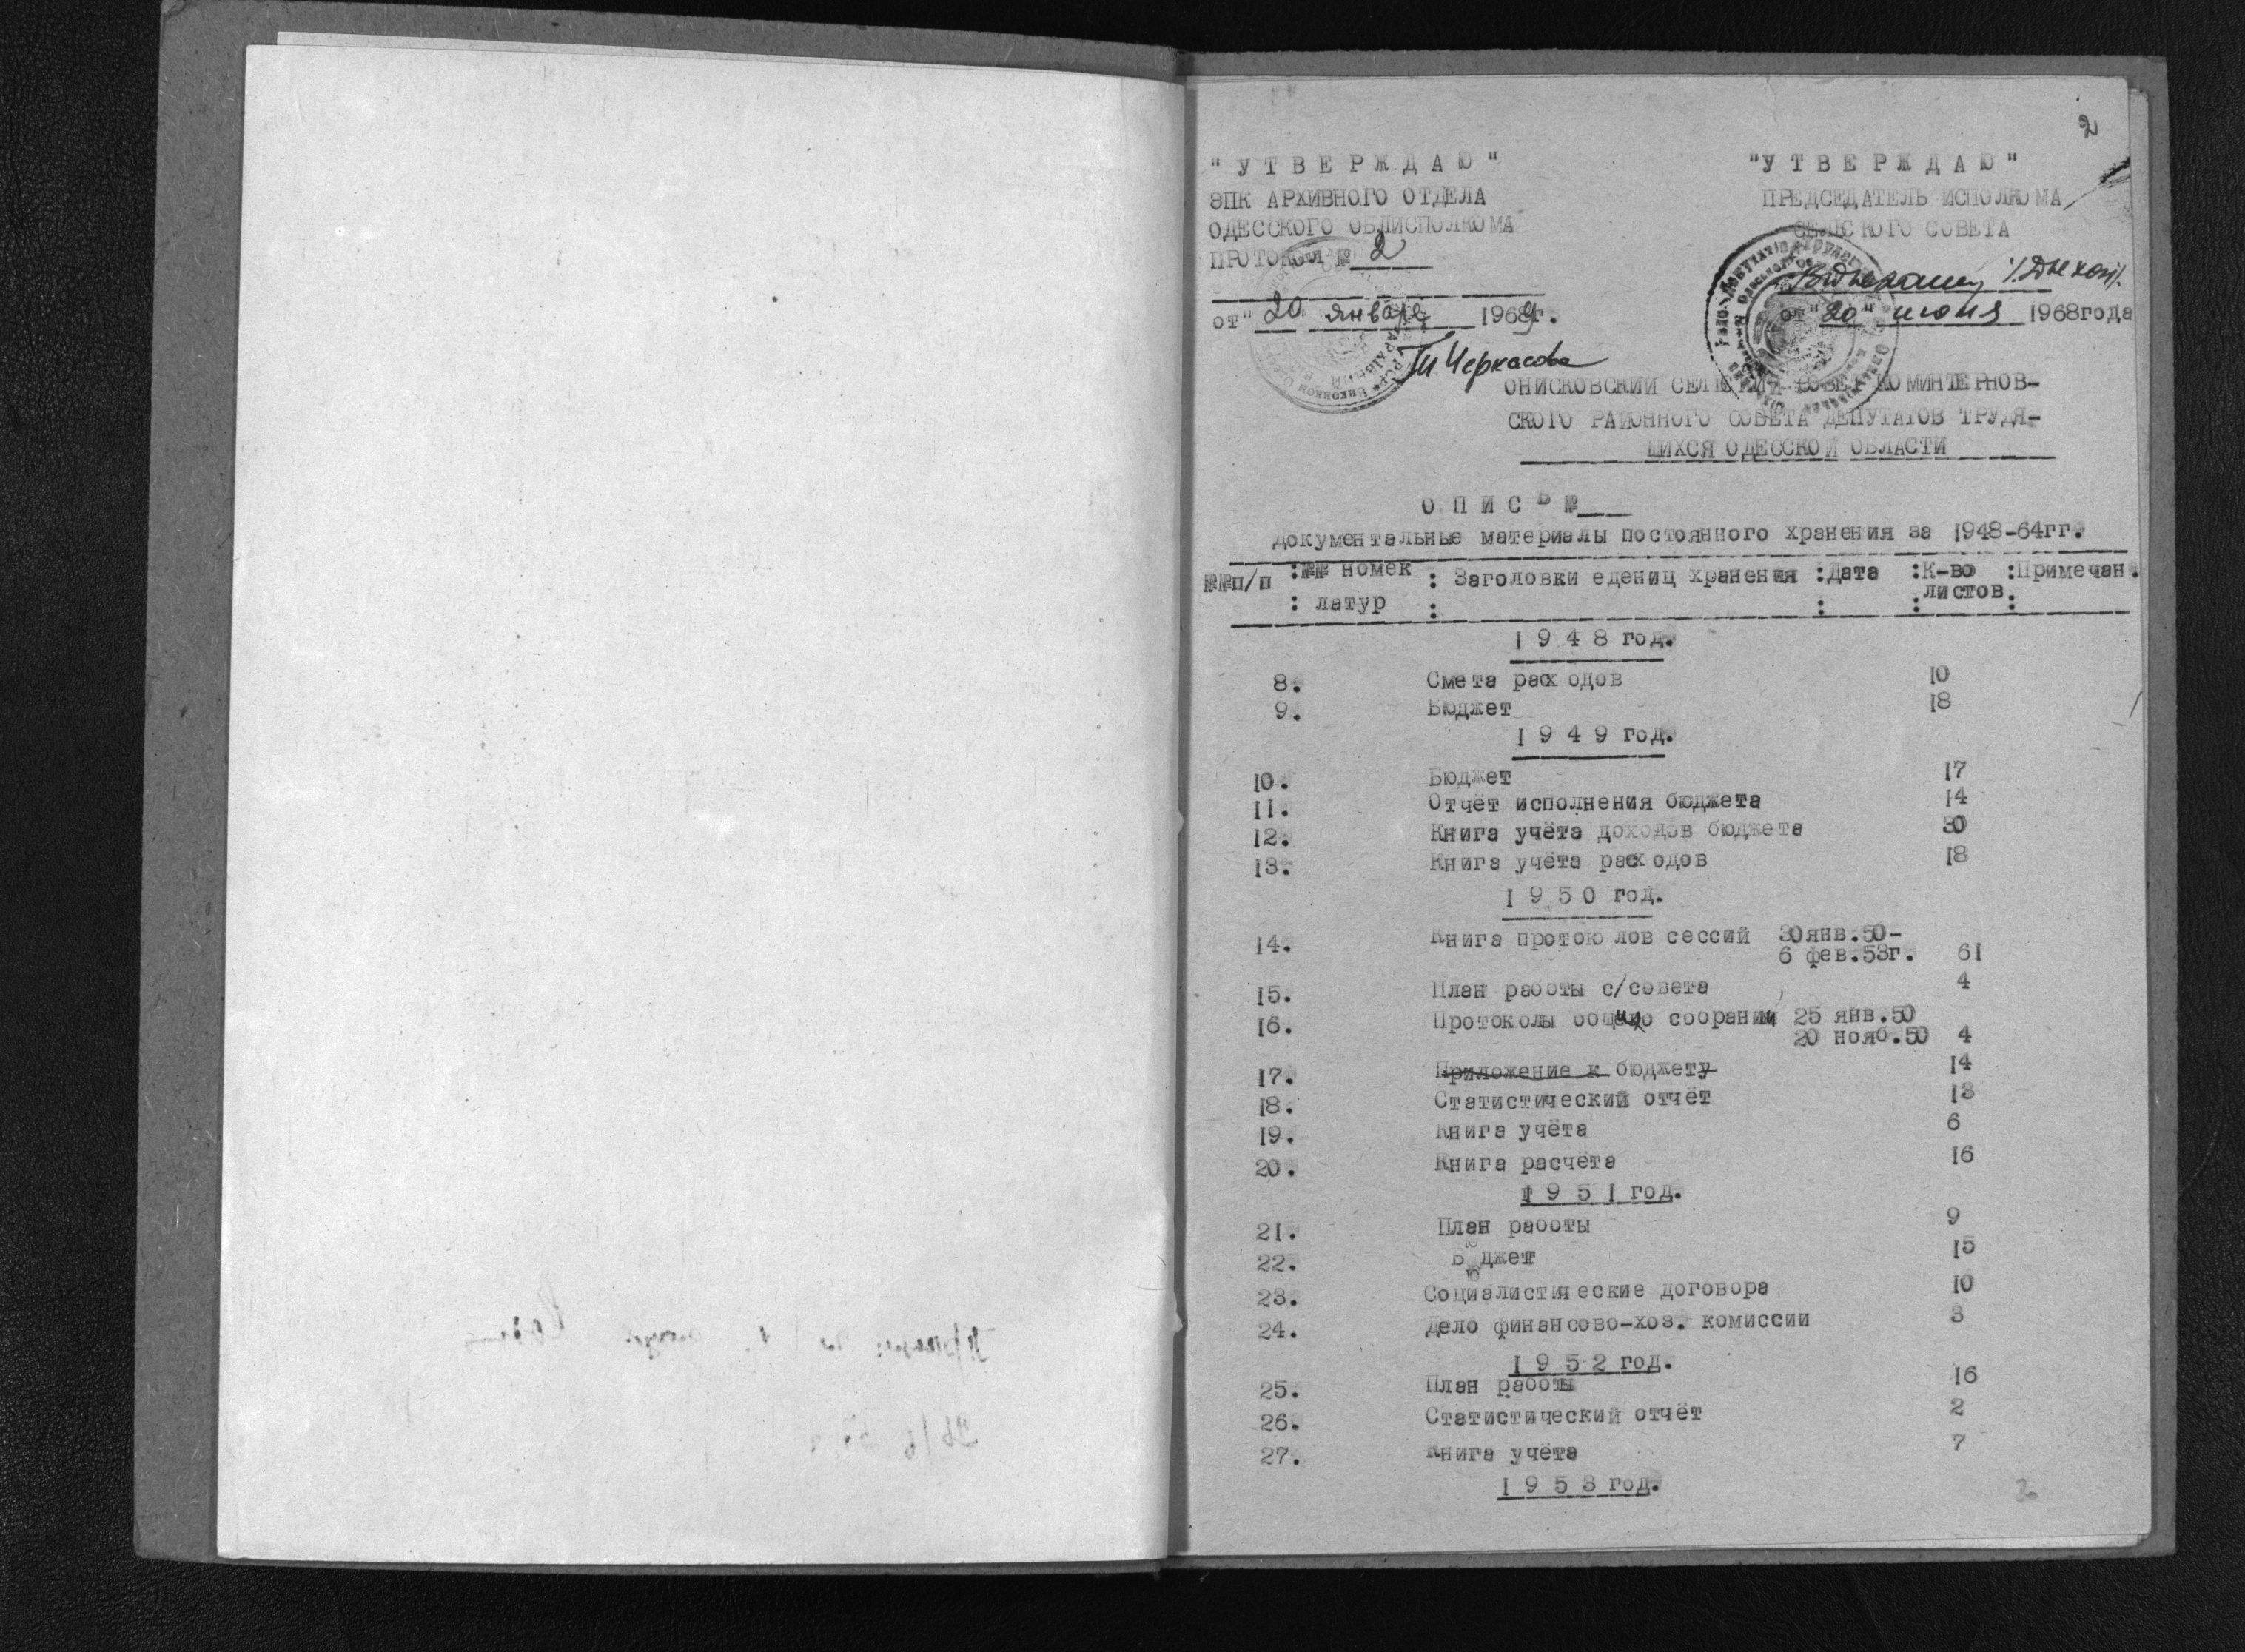 2
"У Т В Е Р Ж Д А Ю"
ЭПК АРХИВНОГО ОТДЕЛА
ОДЕССКОГО ОБЛИСПОЛКОМА
ПРОТОКОЛ № 2
от "20" января 1969г.
Черкасова
"У Т В Е Р Ж Д А Ю"
ПРЕДСЕДАТЕЛЬ ИСПОЛКОМА
СЕЛЬСКОГО СОВЕТА
от "20" июня 1968года
ОНИСКОВСКИЙ СЕЛЬСКИЙ СОВЕТ КОМИНТЕРНОВ-
СКОГО РАЙОННОГО СОВЕТА ДЕПУТАТОВ ТРУДЯ-
ЩИХСЯ ОДЕССКОЙ ОБЛАСТИ
О П И С Ь №
документальные материалы постоянного хранения за 1948-64гг.
№№п/п :№№ номек : Заголовки едениц хранения :Дата :К-во :Примечан.
: латур : : : листов :
1 9 4 8 год.
8. Смета расходов 10
9. Бюджет 18
1 9 4 9 год.
10. Бюджет 17
11. Отчёт исполнения бюджета 14
12. Книга учёта доходов бюджета 30
13. Книга учёта расходов 18
1 9 5 0 год.
14. Книга протоколов сессий 30янв.50-
6 фев.53г. 61
15. План работы с/совета 4
16. Протоколы общих собраний 25 янв.50
20 нояб.50 4
17. Приложение к бюджету 14
18. Статистический отчёт 13
19. Книга учёта 6
20. Книга расчёта 16
1 9 5 1 год.
21. План работы 9
22. Бюджет 15
23. Социалистические договора 10
24. Дело финансово-хоз. комиссии 3
1 9 5 2 год.
25. План работы 16
26. Статистический отчёт 2
27. Книга учёта 7
1 9 5 3 год.